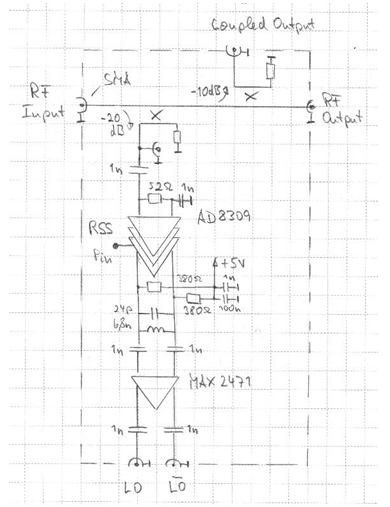 Coupled Output
SMA
RF
Input
-10dB
RF
Output
-20
dB
1n
52Ω
1n
AD8309
RSS
Pin
+5V
380Ω
1n
380Ω
100n
24p
6,8n
1n
1n
MAX2471
1n
1n
LO
LO